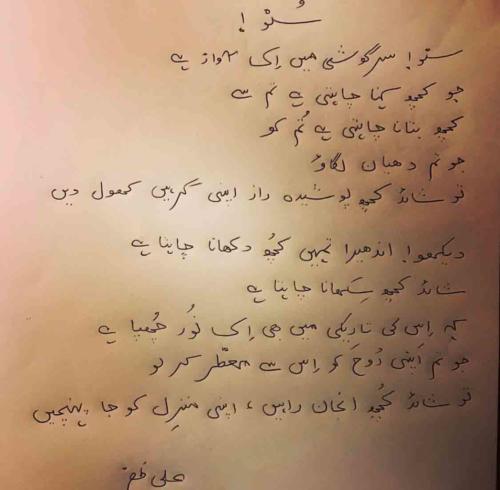 سُنو !
سنو! سرگوشی میں اِک آواز ہے
جو کچھ کہنا چاہتی ہے تم سے
کچھ بتانا چاہتی ہے تُم کو
جو تم دھیان لگاؤ
تو شائد کچھ پوشیدہ راز اپنی گرہیں کھول دیں
دیکھو! اندھیرا تمہیں کچھ دکھانا چاہتا ہے
شائد کچھ سِکھانا چاہتا ہے
کہ اِس کی تاریکی میں بھی اِک نُور چُھپا ہے
جو تم اپنی رُوح کو اِس سے معطّر کر لو
تو شائد کُچھ انجان راہیں، اپنی منزِل کو جا پہنچیں
علی ظفر